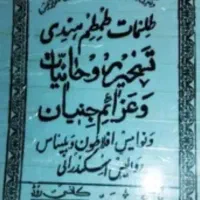 طلسمات طمطم هندی
تسخیر روحانیات
و عزائم جنیان
و نوامیس افلاطون و بلیناس
ذوالفنون اسکندرانی